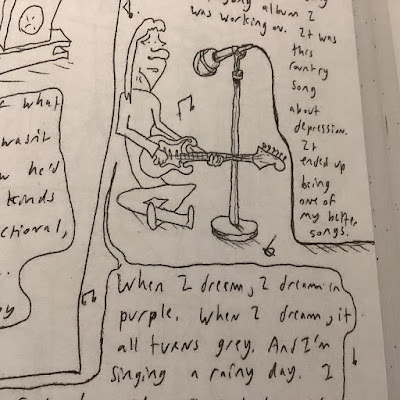 song album I
was working on. It was
this
country
song
about
depression.
It
ended up
being
one of
my better
songs.
what
wasn't
he'd
kinds
ctional,
When I dream, I dream in
purple. When I dream, it
all turns grey. And I'm
singing a rainy day. I